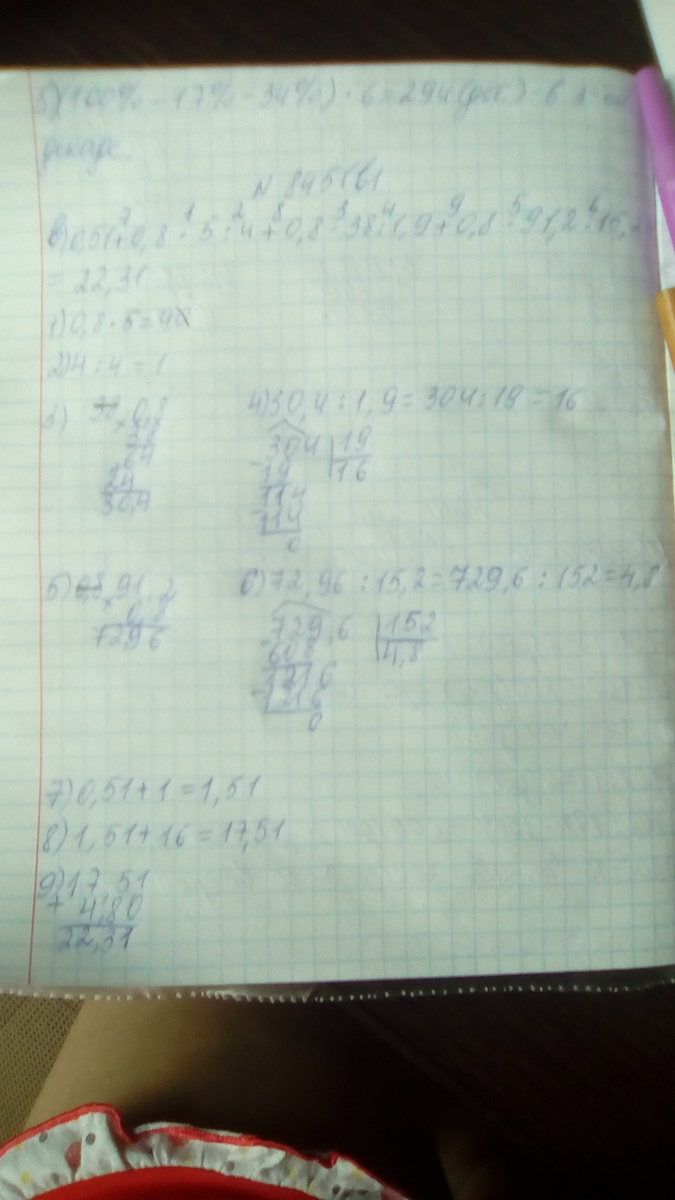 5)(100% - 17% - 34%) · 6 = 294 (дет.) - в 3-ей
декаде.
N 845(в)
в) 0,51 + 0,8 · 5 : 4 + 0,8 · 38 : 1,9 + 0,8 · 91,2 : 15,2
7 1 2 8 3 4 9 5 6
= 22,31
1) 0,8 · 5 = 4
2) 4 : 4 = 1
3) 0,8
×
38
64
24
30,4
4) 30,4 : 1,9 = 304 : 19 = 16
304 | 19
- 19 16
114
- 114
0
5) 91,2
× 0,8
7296
6) 72,96 : 15,2 = 729,6 : 152 = 4,8
729,6 | 152
- 608 4,8
1216
- 1216
0
7) 0,51 + 1 = 1,51
8) 1,51 + 16 = 17,51
9) 17,51
+ 4,80
22,31